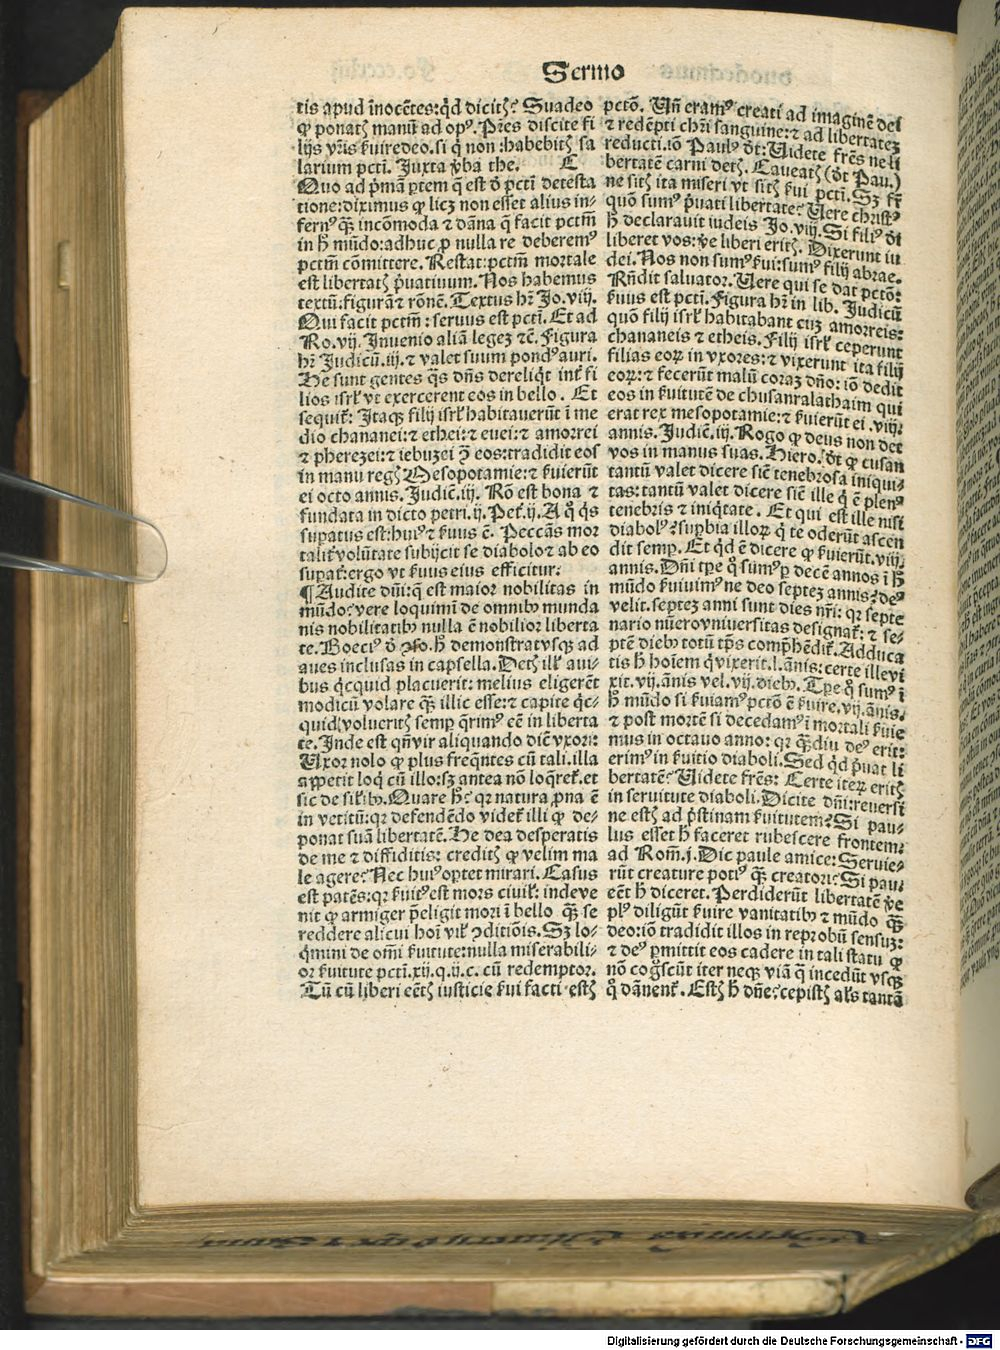 Sermo
tis apud īnocētes: q̄d dicitꝭ? Suadeo
ꝙ ponatꝭ manū ad opꝰ. Pr̄es discite fi
lijs vr̄is ẜuire deo. si q̄ non: habebitꝭ sa
larium pctī. Juxta v̄ba the. C
Quo ad p̄mā ꝑtem q̄ est ō pctī detesta
tione: diximus ꝙ licꝫ non esset alius in⸗
fernꝰ qꝫ̄ incōmoda ⁊ dāna q̄ facit pctm̄
in h̄ mūdo: adhuc ꝓ nulla re deberemꝰ
pctm̄ cōmittere. Restat: pctm̄ mortale
est libertatꝭ p̄uatiuum. Nos habemus
textū: figurā ⁊ rōnē. Textus hr̄ Jo. viij.
Qui facit pctm̄: seruus est pctī. Et ad
Ro. vij. Inuenio aliā legeꝫ ⁊c̄. Figura
hr̄ Judicū. iij. ⁊ valet suum pondꝰ auri.
He sunt gentes q̄s dn̄s dereliq̇t int̄ fi
lios isrl̄ vt exercerent eos in bello. Et
sequit̄: Itaqꝫ filij isrl̄ habitauerūt ī me
dio chananei: ⁊ ethei: ⁊ euei: ⁊ amorrei
⁊ pherezei: ⁊ iebuzei ꝯ̄ eos: tradidit eos
in manu regꝭ Mesopotamie: ⁊ ẜuierūt
ei octo annis. Judic̄. iij. Rō est bona ⁊
fundata in dicto petri. ij. Pet̄. ij. A q̊ q̇s
suꝑatus est: huiꝰ ⁊ ẜuus ē. Peccās mor
talit̄ volūtate subijcit se diabolo ⁊ ab eo
suꝑat̄: ergo vt ẜuus eius efficitur:
¶ Audite dn̄i: q̄ est maior nobilitas in
mūdo? vere loquimī de omnibꝰ munda
nis nobilitatibꝰ nulla ē nobilior liberta
te. Boeciꝰ ō ꝯso. h̄ demonstrat vsqꝫ ad
aues inclusas in capsella. Detꝭ ill̄ aui⸗
bus q̇cquid placuerit: melius eligerēt
modicū volare qꝫ̄ illic esse: ⁊ capite q̇c⸗
quid voluerītꝭ semꝑ q̄rimꝰ eē in liberta
te. Inde est qn̄ vir aliquando dic̄ vxori:
Uxor nolo ꝙ plus freq̄ntes cū tali. illa
appetit loq̇ cū illo: sꝫ antea nō loq̄ret̄. et
sic de sil̄ibꝰ. Quare h̄? qꝛ natura ꝓna ē
in vetitū: qꝛ defendēdo videt̄ illi ꝙ de⸗
ponat suā libertatē. He dea desperatis
de me ⁊ diffiditis: creditꝭ ꝙ velim ma
le agere? Nec huiꝰ oꝑtet mirari. Casus
est patēs: qꝛ ẜuitꝰ est mors ciuil̄: inde ve
nit ꝙ armiger p̄eligit mori ī bello qꝫ̄ se
reddere alicui hoī vil̄ ꝯditiōis. Sꝫ lo⸗
q̇mini de om̄i ẜuitute: nulla miserabili⸗
or ẜuitute pctī. xij. q. ij. c. cū redemptor.
Tū cū liberi eētꝭ iusticie ẜui facti estꝭ
pctō. Un̄ eramꝰ creati ad imaginē dei
⁊ redēpti chr̄i sanguine: ⁊ ad libertateꝫ
reducti. iō Paulꝰ dt̄: Uidete fr̄es ne li
bertatē carni detꝭ. Caueatꝭ (dt̄ Pau.)
ne sitꝭ ita miseri vt sitꝭ ẜui pctī. Sꝫ fr̄
quō sumꝰ p̄uati libertate? Uere christꝰ
h̄ declarauit iudeis Jo. viij. Si filiꝰ dī
liberet vos: v̄e liberi eritꝭ. Dixerunt iu
dei. Nos non sumꝰ ẜui: sumꝰ filij abrae.
Rn̄dit saluator. Uere qui se dat pctō:
ẜuus est pctī. Figura hr̄ in lib. Judicū
quō filij isrl̄ habitabant cuꝫ amorreis:
chananeis ⁊ etheis. Filij isrl̄ ceperunt
filias eoꝝ in vxores: ⁊ vixerunt ita filij
eoꝝ: ⁊ fecerūt malū coraꝫ dn̄o: iō dedit
eos in ẜuitutē de chusanralathaim qui
erat rex mesopotamie: ⁊ ẜuierūt ei .viij.
annis. Judic̄. iij. Rogo ꝙ deus non det
vos in manus suas. Hiero. dt̄ ꝙ cusan
tantū valet dicere sic̄ tenebrosa iniqui⸗
tas: tantū valet dicere sic̄ ille q̇ ē plenꝰ
tenebris ⁊ iniq̇tate. Et qui est ille nisi
diabolꝰ? suꝑbia illoꝝ q̇ te oderūt ascen
dit semꝑ. Et q̇d ē dicere ꝙ ẜuierūt. viij.
annis. Dn̄i tꝑe q̊ sumꝰ ꝑ decē annos ī h̄
mūdo ẜuiuimꝰ ne deo septeꝫ annis? deꝰ
velit. septeꝫ anni sunt dies nr̄i: qꝛ septe
nario nūero vniuersitas designat̄: ⁊ se⸗
ptē diebꝰ totū tp̄s comp̄hēdit̄. Adduca
tis h̄ hoīem q̇ vixerit. l. ānis: certe ille vi
xit. vij. ānis vel. vij. diebꝰ. Tꝑe q̊ sumꝰ ī
h̄ mūdo si ẜuiamꝰ pctō ē ẜuire. vij. ānis.
⁊ post mortē si decedamꝰ ī mortali ẜuie
mus in octauo anno: qꝛ qꝫ̄diu deꝰ erit:
erimꝰ in ẜuitio diaboli. Sed q̇d p̄uat li
bertatē? Uidete fr̄es: Certe iteꝝ eritꝭ
in seruitute diaboli. Dicite dn̄i: reuersi
ne estꝭ ad p̄stinam ẜuitutem? Si pau⸗
lus esset h̄ faceret rubescere frontem:
ad Rom̄. j. Dic paule amice: Seruie⸗
rūt creature potiꝰ qꝫ̄ creatori: Si pau⸗
eēt h̄ diceret. Perdiderūt libertatē v̄e
plꝰ diligūt ẜuire vanitatibꝰ ⁊ mūdo qꝫ̄
deo: iō tradidit illos in reprobū sensuꝫ:
⁊ deꝰ ꝑmittit eos cadere in tali statu ꝙ
nō cog̊scūt iter neqꝫ viā q̄ incedūt vsqꝫ
q̊ dānent̄. Estꝭ h̄ dn̄e? cepistꝭ al̄s tantā
Digitalisierung gefördert durch die Deutsche Forschungsgemeinschaft - DFG